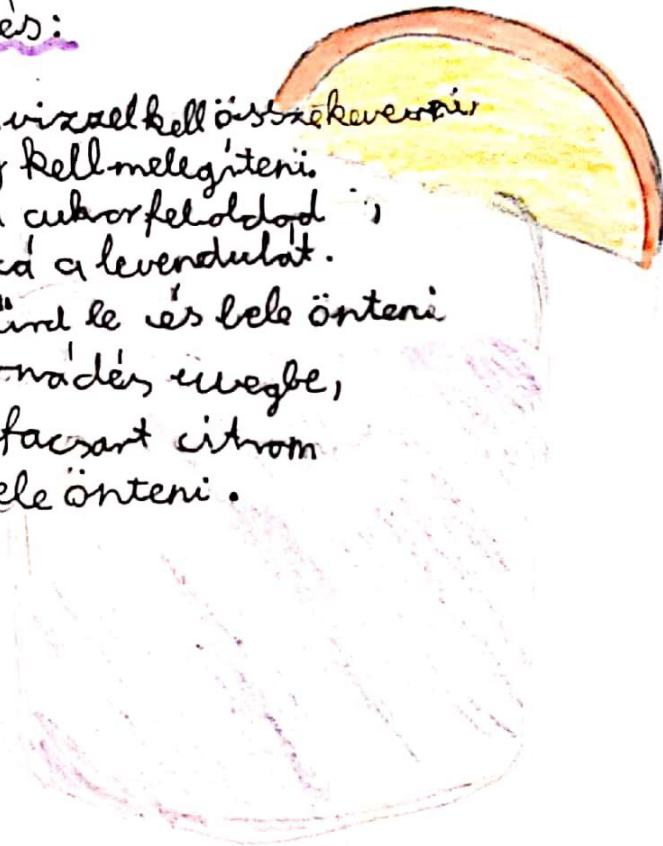 és:
vizzel kell összekeverni
kell melegíteni.
cukor feloldod,
á a levendulát.
űrd le és bele önteni
nádés üvegbe,
facsart citrom
ele önteni.